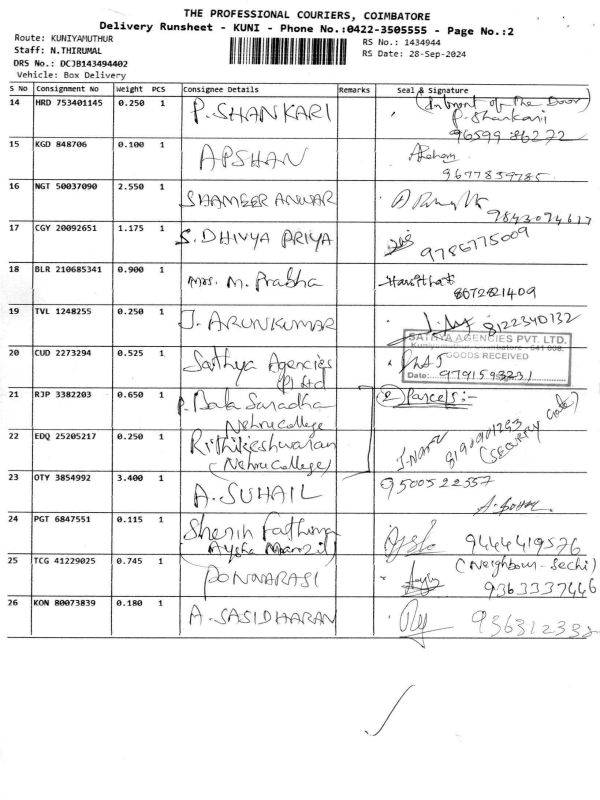 THE PROFESSIONAL COURIERS, COIMBATORE
Delivery Runsheet - KUNI - Phone No.:0422-3505555 - Page No.:2
Route: KUNIYAMUTHUR
RS No.: 1434944
Staff: N.THIRUMAL
RS Date: 28-Sep-2024
DRS No.: DCJB143494402
Vehicle: Box Delivery
S No Consignment No Weight PCS Consignee Details Remarks Seal & Signature
14 HRD 753401145 0.250 1 P. SHANKARI
(Infront of the Door)
P. Shankari
96599 86272
15 KGD 848706 0.100 1 APSHAN
9677859785
16 NGT 50037090 2.550 1 SHAMEER ANWAR
9843074617
17 CGY 20092651 1.175 1 S. DHIVYA PRIYA 9786775009
18 BLR 210685341 0.900 1 Mrs. M. Prabha
8072821409
19 TVL 1248255 0.250 1 J. ARUNKUMAR 8122340132
SATHYA AGENCIES PVT. LTD.
Coimbatore - 641 008.
20 CUD 2273294 0.525 1 Sathya Agencies
GOODS RECEIVED
P Ltd
Date: 9791593231
21 RJP 3382203 0.650 1 P. Bala Saradha
(2) Parcels:-
Nehru College
22 EDQ 25205217 0.250 1 Rithikeshwaran
(Nehru College)
8190901293
(Security Gate)
23 OTY 3854992 3.400 1 A. SUHAIL 9500522557
24 PGT 6847551 0.115 1 Sherin Fathima
(Aysha Manzil) 9444419576
25 TCG 41229025 0.745 1 PONNARASI
(Neighbour - Sechi)
9363337446
26 KON 80073839 0.180 1 A. SASIDHARAN 936312332